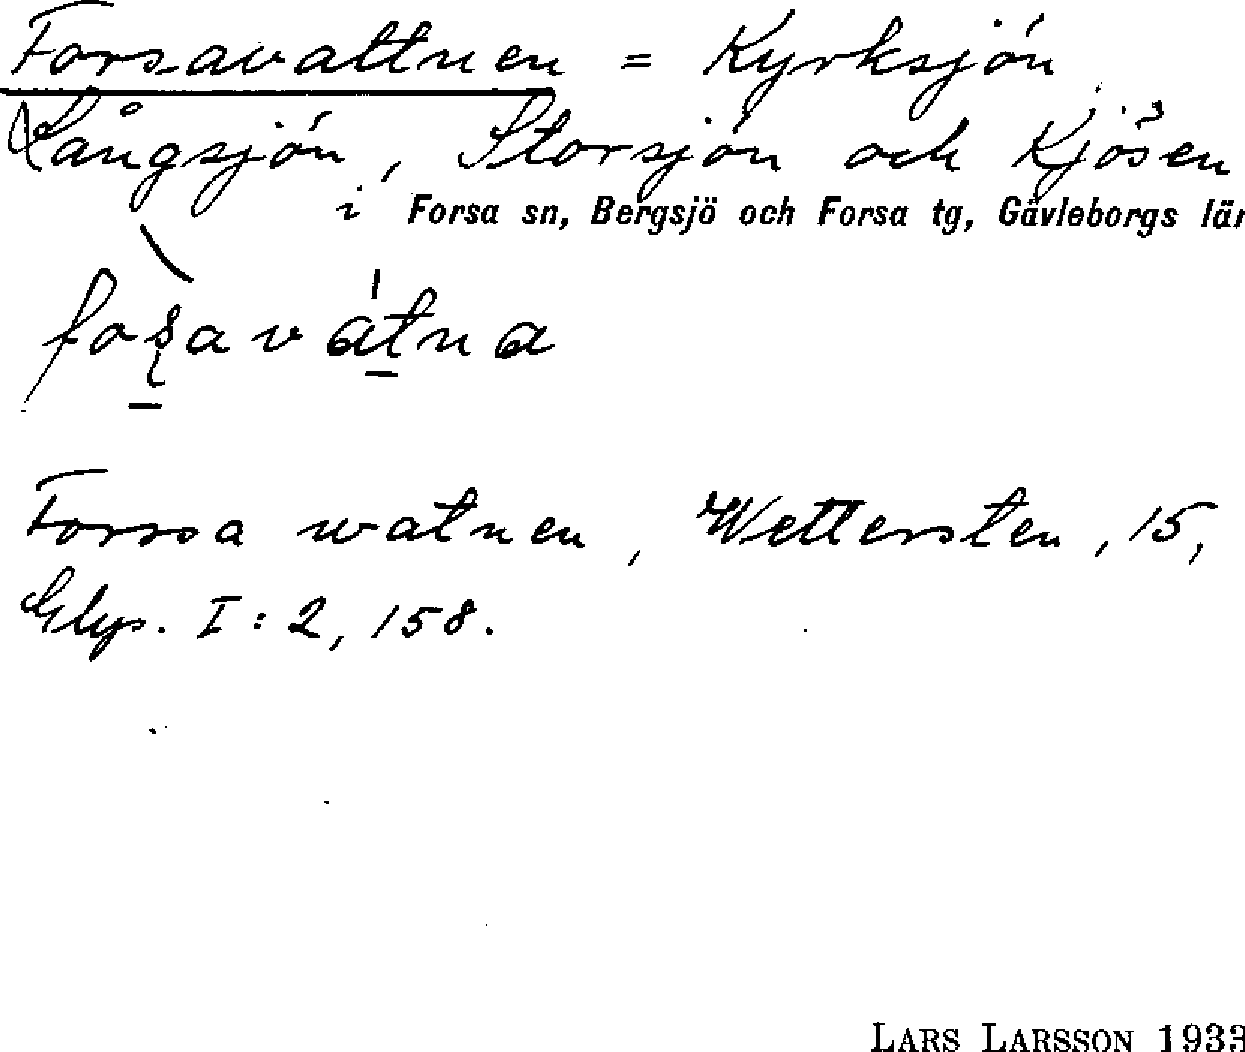 Forsavattnen = Kyrksjön
Långsjön, Storsjön och Kjösen
i Forsa sn, Bergsjö och Forsa tg, Gävleborgs län
Forssa watnen, Wettersten, 15,
Glys. I:2, 158.
LARS LARSSON 1933